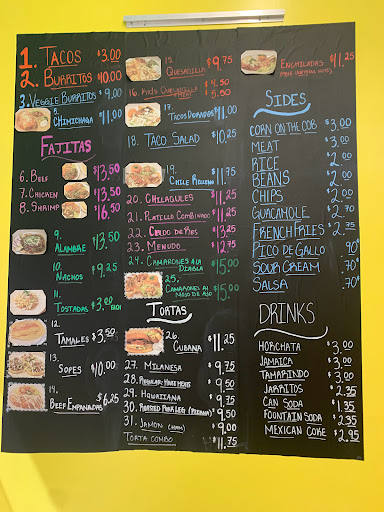 1. TACOS $3.00
2. BURRITOS $10.00
3. VEGGIE BURRITOS $9.00
CHIMICHAGA $11.00
FAJITAS
6. BEEF $13.50
7. CHICKEN $13.50
8. SHRIMP $16.50
9. ALAMBRE $13.50
10. NACHOS $9.25
11. TOSTADAS $3.00 EACH
12. TAMALES $3.50
13. SOPES $10.00
14. BEEF EMPANADAS $6.25
15. QUESADILLA $9.75
16. KIDS QUESADILLA $4.50
$5.50
17. TACOS DORADOS $11.00
18. TACO SALAD $10.25
19. CHILE RELLENO $11.75
20. CHILAQUILES $11.25
21. PLATILLO COMBINADO $11.25
22. CALDO DE RES $13.25
23. MENUDO $12.75
24. CAMARONES A LA DIABLA $15.00
25. CAMARONES AL MOJO DE AJO $15.00
TORTAS
26. CUBANA $11.25
27. MILANESA $9.75
28. REGULAR MEATS $9.50
29. HAWAIIANA $9.75
30. ROASTED PORK LEG (PIERNA) $9.50
31. JAMON (HAM) $9.00
TORTA COMBO $11.75
ENCHILADAS $11.25
SIDES
CORN ON THE COB $3.00
MEAT $3.00
RICE $2.00
BEANS $2.00
CHIPS $2.00
GUACAMOLE $2.70
FRENCH FRIES $2.75
PICO DE GALLO .90¢
SOUR CREAM .70¢
SALSA .70¢
DRINKS
HORCHATA $3.00
JAMAICA $3.00
TAMARINDO $3.00
JARRITOS $2.35
CAN SODA $1.35
FOUNTAIN SODA $2.35
MEXICAN COKE $2.95